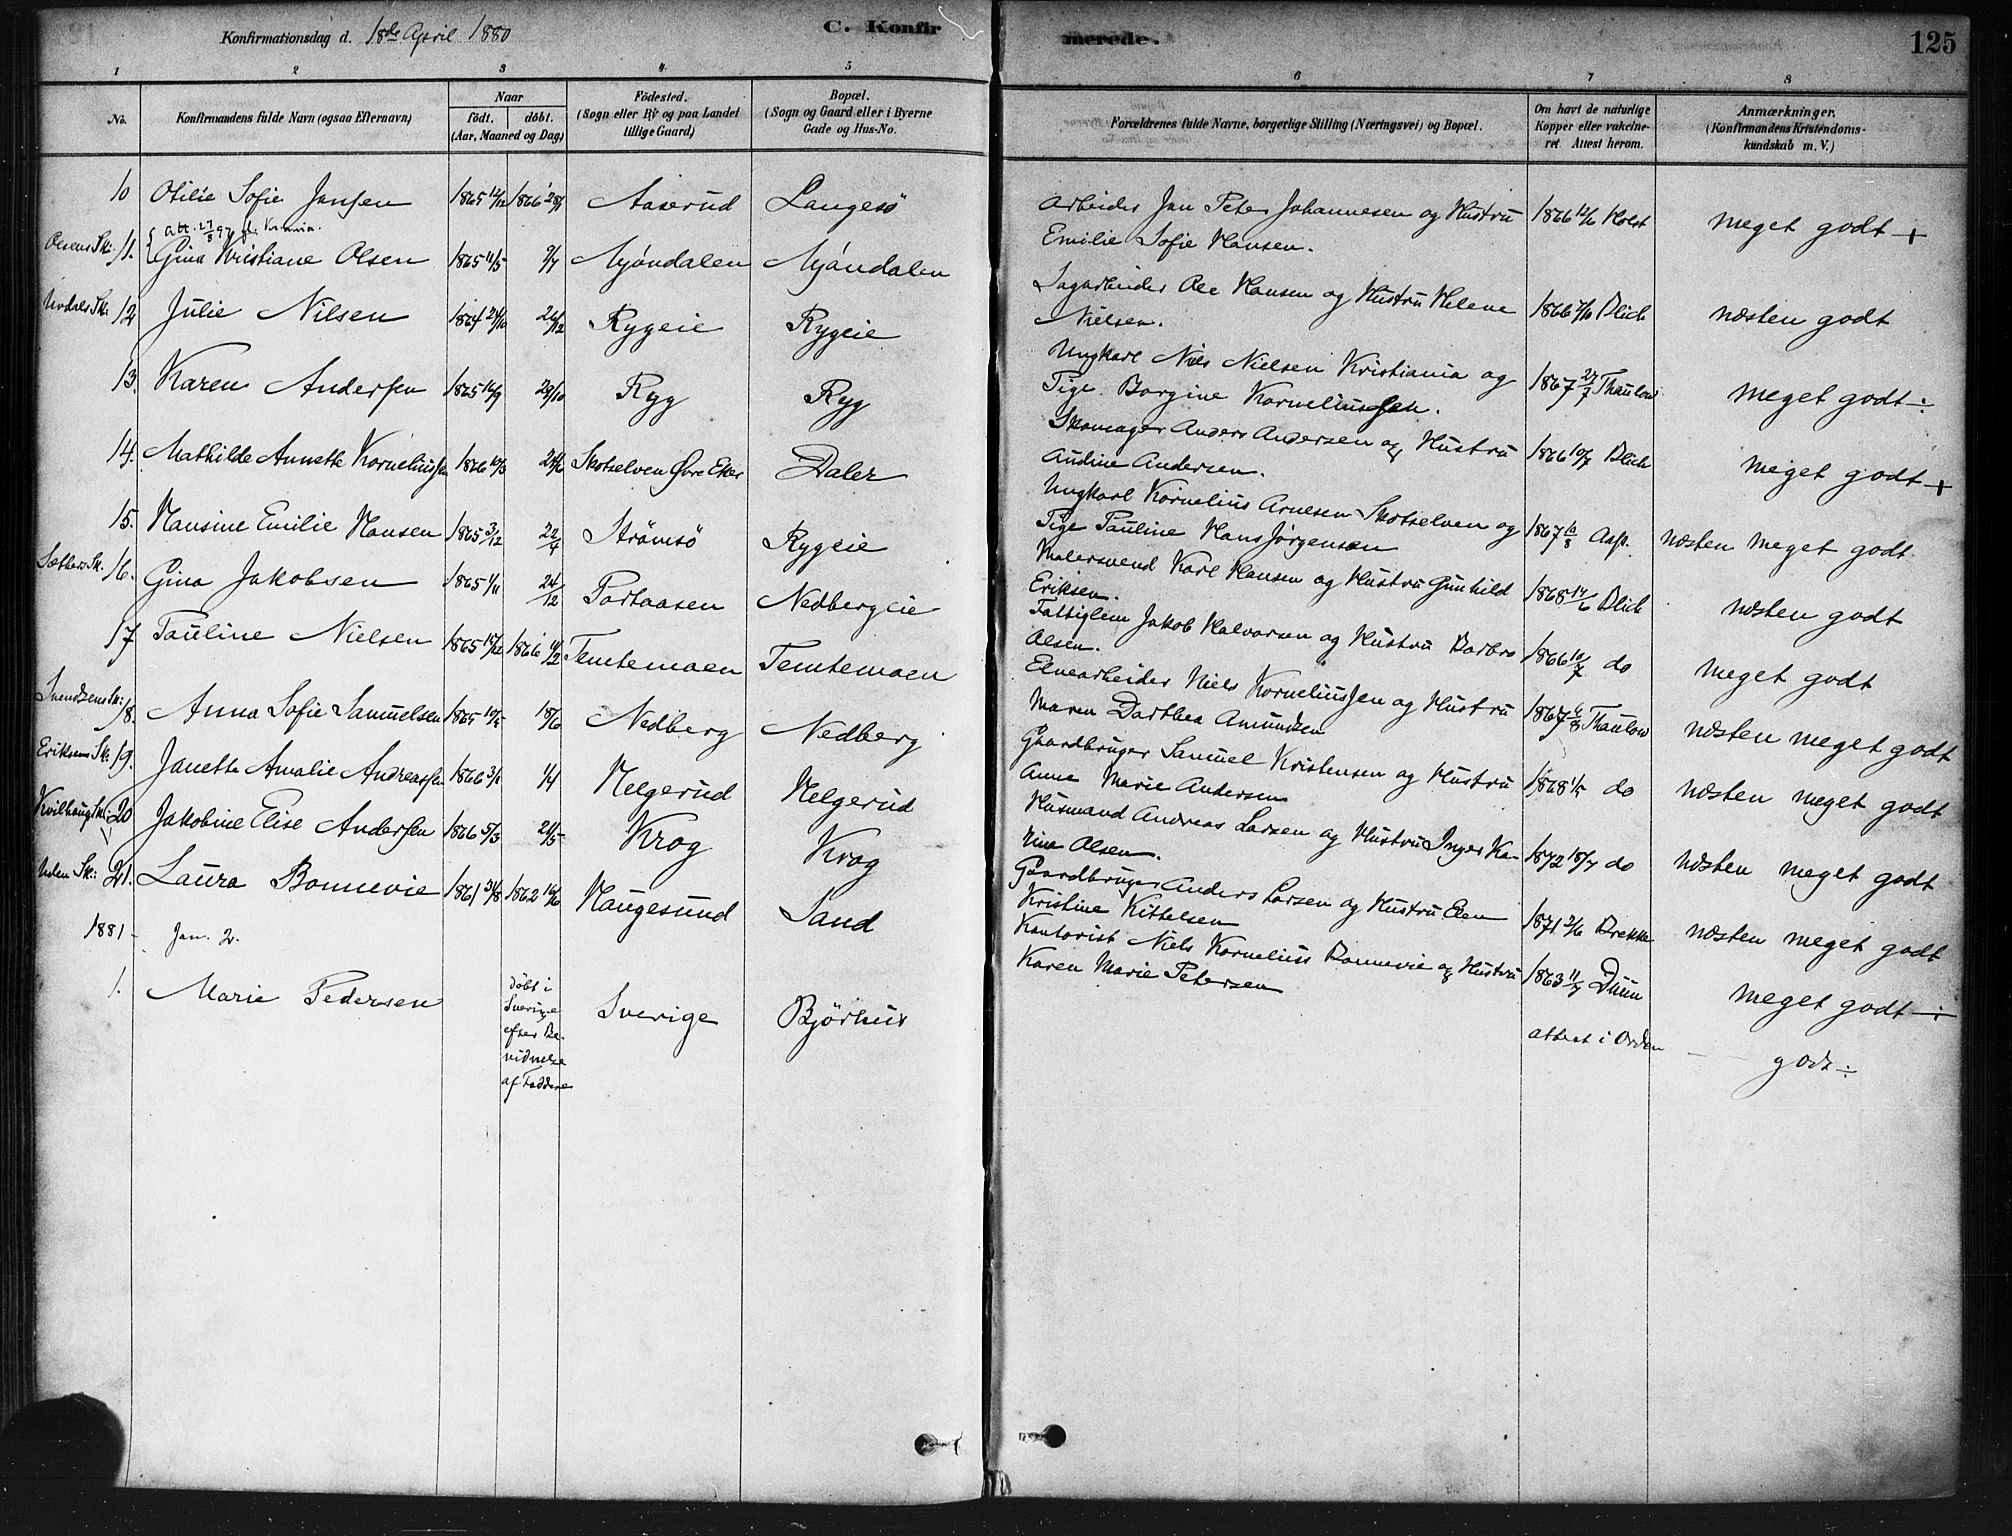 Konfirmationsdag d. 18de April 1880
C. Konfir
merede.
125
1 2 3 4 5 6 7 8
No.
Konfirmandens fulde Navn (ogsaa Efternavn)
Naar
födt. döbt.
(Aar, Maaned og Dag)
Födested.
(Sogn eller By og paa Landet
tillige Gaard)
Bopæl.
(Sogn og Gaard eller i Byerne
Gade og Hus-No.
Forældrenes fulde Navne, borgerlige Stilling (Næringsvei) og Bopæl.
Om havt de naturlige
Kopper eller vakcine-
ret Attest herom.
Anmærkninger.
(Konfirmandens Kristendoms-
kundskab m. V.)
10 Otilie Sofie Jansen 1865 12/12 1866 Aaserud Langesö
Arbeider Jan Peter Johannesen og Hustru
Emilie Sofie Hansen.
1866 12/6 Holst
meget godt +
Att. 27/8 97
Olsens Sk: 11. Gina Kristiane Olsen 1865 11/5 9/7 Mjöndalen Mjöndalen
Sagarbeider Ole Hansen og Hustru Helene
Nielsen.
1866 7/10 Blich
næsten godt
12 Julie Nilsen 1864 24/10 26/12 Rygeie Rygeie
Ungkarl Niels Nielsen Kristiania og
Pige Borgine Korneliussen.
1867 27/7 Thaulow
meget godt ÷
13 Karen Andersen 1865 16/9 29/10 Ryg Ryg
Skomager Anders Andersen og Hustru
Audine Andersen.
1866 10/7 Blich
meget godt +
14. Mathilde Annette Korneliussen 1866 24/6 Skotselven Øvre Eker Daler
Ungkarl Kornelius Arnesen Skotselven og
Pige Pauline Hans Jørgensen
1867 10/8 Asp.
næsten meget godt
15. Hansine Emilie Hansen 1865 3/12 22/4 Strömsö Rygeie
Malersvend Karl Hansen og Hustru Gunhild
Eriksen.
1868 14/6 Blich
næsten godt
Sæthers Sk. 16. Gina Jakobsen 1865 1/11 24/12 Portaasen Nedbergeie
Fattiglem Jakob Halvorsen og Hustru Barbro
Olsen.
1866 10/7 do
meget godt
17 Pauline Nielsen 1865 15/12 1866 11/2 Temtemoen Temtemoen
Elvearbeider Niels Korneliussen og Hustru
Maren Dorthea Amundsen
1867 6/8 Thaulow
næsten meget godt
Svendsens Sk: 18. Anna Sofie Samuelsen 1865 10/5 18/6 Nedberg Nedberg
Gaardbruger Samuel Kristensen og Hustru
Anne Marie Andersen
1868 1/5 do
næsten meget godt
Eriksens Sk: 19. Janette Amalie Andreassen 1866 3/1 1/4 Helgerud Helgerud
Husmand Andreas Larsen og Hustru Inger Ka-
rine Olsen.
1872 18/7 do
næsten meget godt
Kvilhaug Sk: 20 Jakobine Elise Andersen 1866 5/3 21/5 Krog Krog
Gaardbruger Anders Larsen og Hustru Elen
Kristine Kittelsen
1871 2/6 Brekke
næsten meget godt
21. Laura Bonnevie 1861 31/8 1862 16/6 Haugesund Sand
Kontorist Niels Kornelius Bonnevie og Hustru
Karen Marie Petersen
1863 11/7 Duun
meget godt ÷
1881 Jan. 2.
1. Marie Pedersen
döbt i
Sverige
efter Be-
vidnelse
af Faddere
Sverige Björhus
attest i Orden
godt ÷